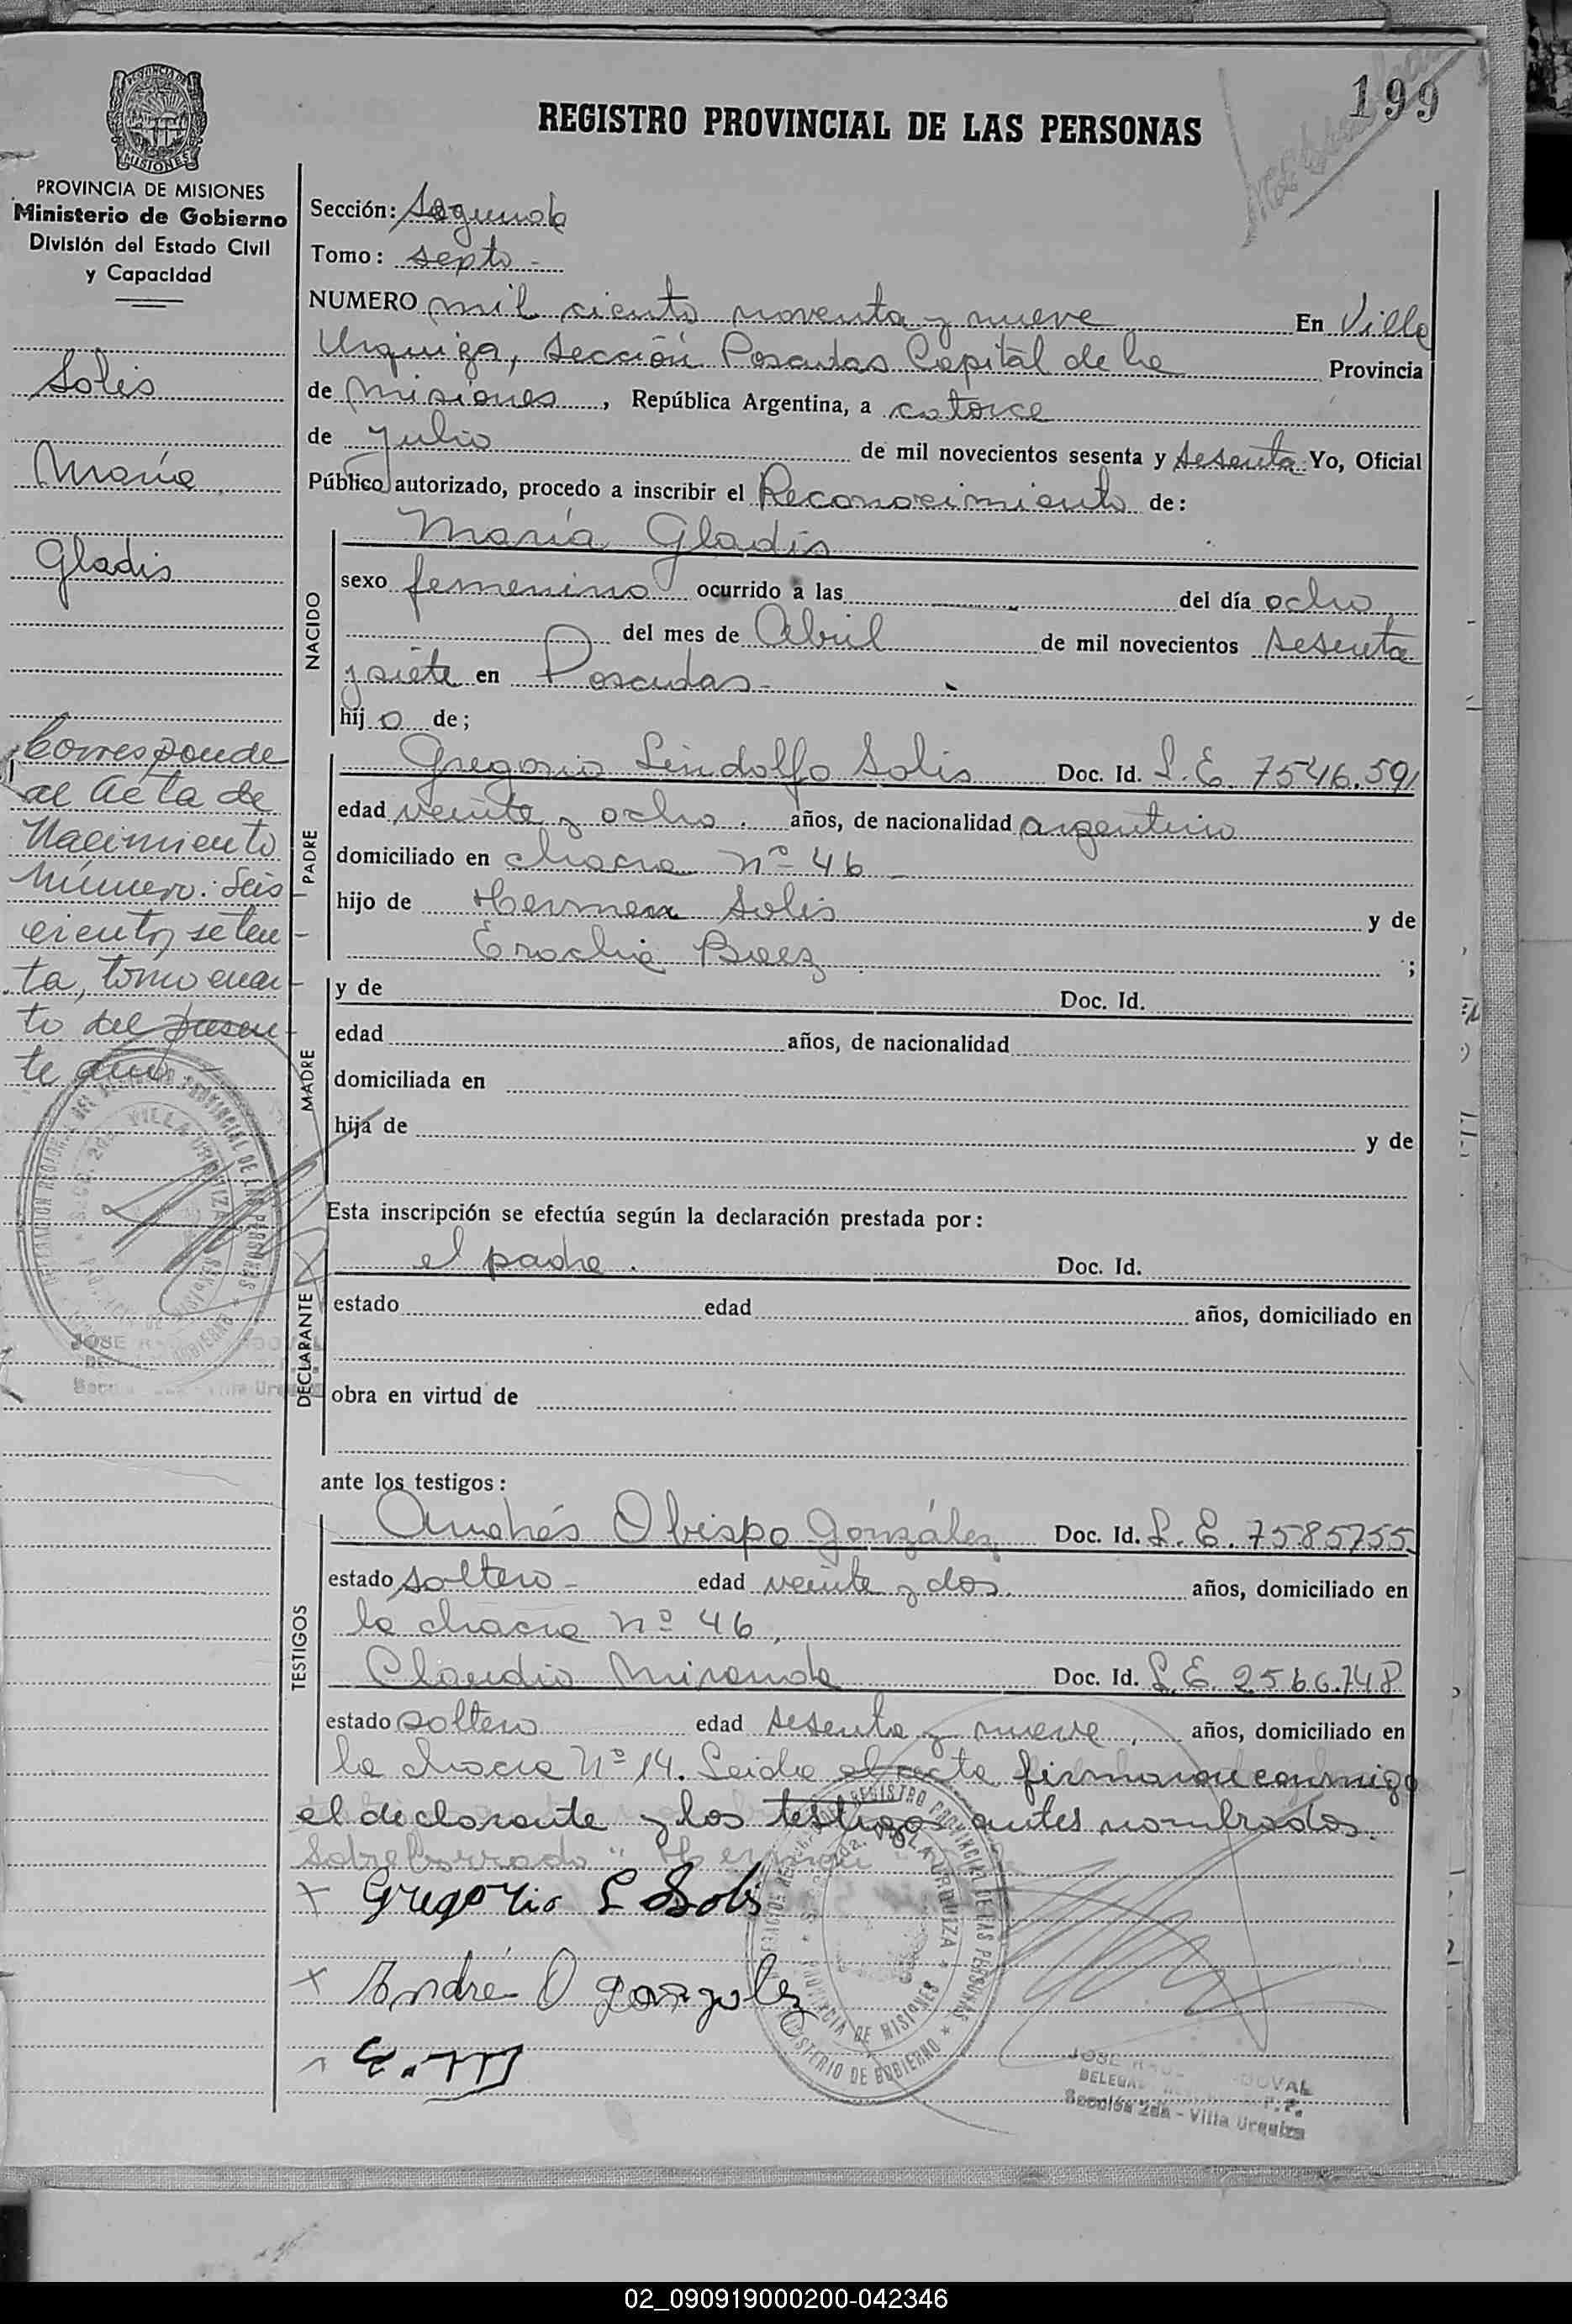 199
REGISTRO PROVINCIAL DE LAS PERSONAS
PROVINCIA DE MISIONES
Ministerio de Gobierno
División del Estado Civil
y Capacidad
Solis
María
Gladis
Corresponde
al Acta de
Nacimiento
Número: Seis
cientos seten
ta, tomo cuar
to del presen
te año
Sección: Segunda
Tomo: septo -
NUMERO mil ciento noventa y nueve En Villa
Urquiza, Sección Posadas Capital de la Provincia
de Misiones, República Argentina, a catorce
de Julio de mil novecientos sesenta y sesenta Yo, Oficial
Público autorizado, procedo a inscribir el Reconocimiento de:
María Gladis
NACIDO
sexo femenino ocurrido a las del día ocho
del mes de Abril de mil novecientos sesenta
y siete en Posadas-
hijo de;
PADRE
Gregorio Lindolfo Solis Doc. Id. L. E. 7546.591
edad veinte y ocho. años, de nacionalidad argentino
domiciliado en chacra Nº 46 -
hijo de Solis y de
Baez ;
MADRE
y de Doc. Id.
edad años, de nacionalidad
domiciliada en
hija de y de
Esta inscripción se efectúa según la declaración prestada por:
DECLARANTE
el padre. Doc. Id.
estado edad años, domiciliado en
obra en virtud de
ante los testigos:
TESTIGOS
Andrés Obispo González Doc. Id. L. E. 7585755
estado soltero- edad veinte y dos. años, domiciliado en
la chacra Nº 46,
Claudio Miranda Doc. Id. L.E. 2566.748
estado soltero edad sesenta y nueve, años, domiciliado en
la chacra Nº 14. Leida el acta firmaron conmigo
el declarante y los testigos antes nombrados.
Sobreborrado
x Gregorio L Solis
x Andre O gonzalez
REGISTRO PROVINCIAL DE LAS PERSONAS
VILLA URQUIZA
PROVINCIA DE MISIONES
MINISTERIO DE GOBIERNO
JOSE
Sección 2da - Villa Urquiza
02_090919000200-042346